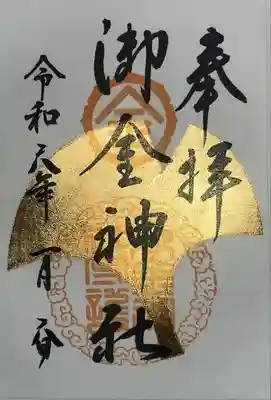 奉拝
御金神社
令和六年 一月